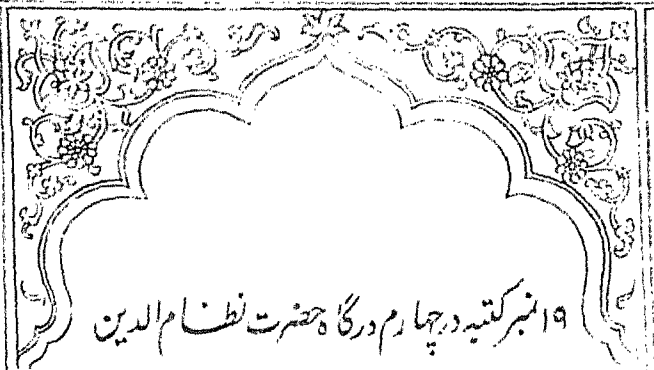 ۱۹نمبر کتبہ در چہارم درگاہ حضرت نظام الدین